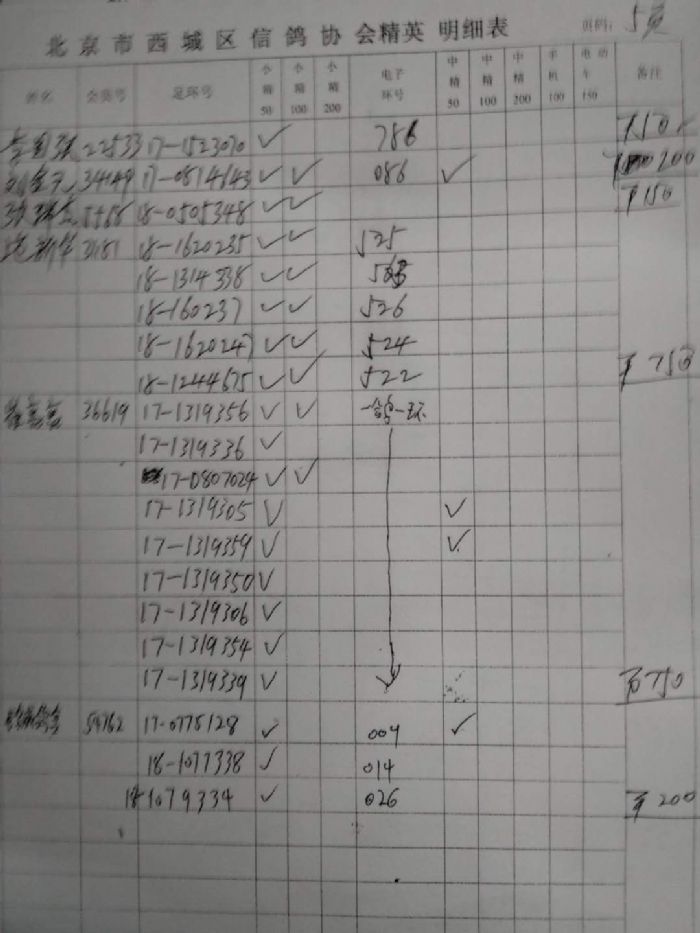 北京市西城区信鸽协会精英 明细表 页码: 5页
姓名 会员号 足环号 小精50 小精100 小精200 电子环号 中精50 中精100 中精200 手机100 电动车150 备注
22533 17-1523070 ✓ 786
34149 17-0814643 ✓ ✓ 086 ✓ 200
18-0505348 ✓ ✓ 150
3181 18-1620235 ✓ ✓ 525
18-1314338 ✓ ✓
18-160237 ✓ ✓ 526
18-162024 ✓ ✓ 524
18-1244675 ✓ ✓ 522 ¥750
36619 17-1319356 ✓ ✓ 一鸽一环
17-1319336 ✓
17-0807024 ✓ ✓
17-1319305 ✓ ✓
17-1319359 ✓ ✓
17-1319350 ✓
17-1319306 ✓
17-1319354 ✓
17-1319339 ✓ ¥750
54762 17-0775128 ✓ 004 ✓
18-1077338 ✓ 014
18-1079334 ✓ 026 ¥200